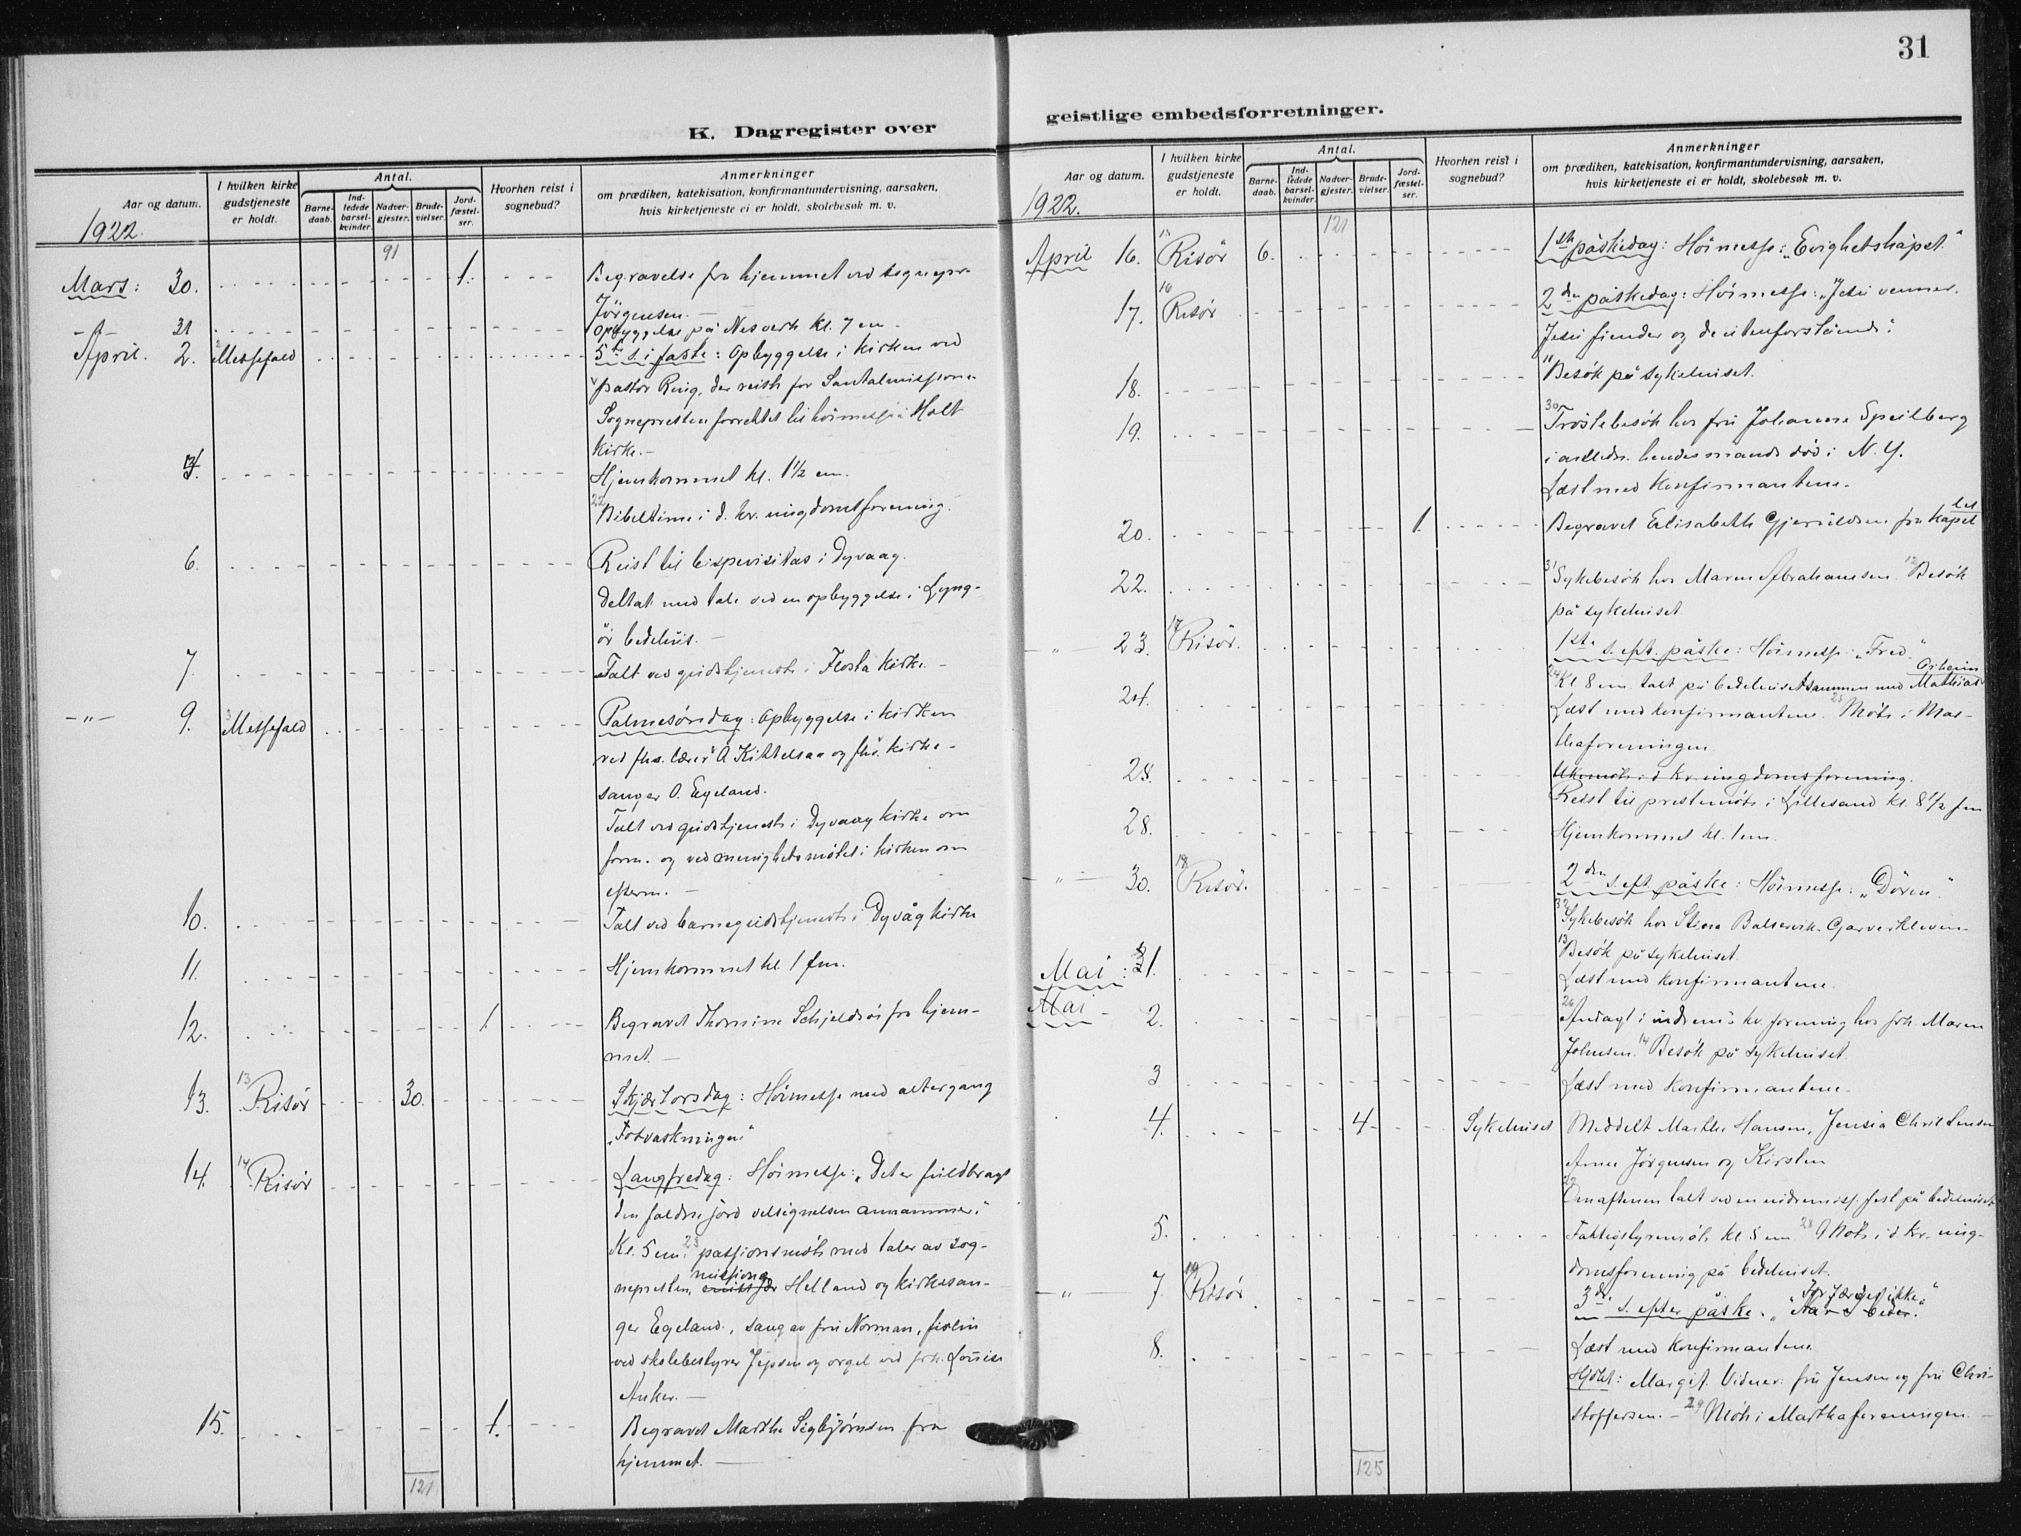 31
K. Dagregister over
geistlige embedsforretninger.
Aar og datum.
I hvilken kirke gudstjeneste er holdt.
Antal.
Barne-daab.
Ind-ledede barsel-kvinder.
Nadver-gjester.
Brude-vielser.
Jord-fæstel-ser.
Hvorhen reist i sognebud?
Anmerkninger
om prædiken, katekisation, konfirmantundervisning, aarsaken,
hvis kirketjeneste ei er holdt, skolebesøk m. v.
1922.
91
Mars: 30. 1. Begravelse fra hjemmet ved sognepr.
Jörgensen. —
31 Opbyggelse på Nesverk kl. 7 em.
April. 2. Messefald 5te s. i faste: Opbyggelse i kirken ved
pastor Ring, der reiste for Santalmissionen
Sognepresten forrettet til höimesse i Holt
kirke. —
Hjemkommet kl. 1½ em.
22 Bibeltime i d. kr. ungdomsforening.
6. Reist til bispevisitas i Dyvaag.
Deltat med tale ved en opbyggelse i Lyng-
ör bedehus. —
7. Talt ved gudstjeneste i Flosta kirke. —
— " — 9. 3 Messefald Palmesöndag: Opbyggelse i kirken
ved fhv. lærer O. Kittelsaa og fhv. kirke-
sanger O. Egeland.
Talt ved gudstjeneste i Dyvaag kirke om
form. og ved menighetsmötet i kirken om
efterm. —
10. Talt ved barnegudstjeneste i Dyvåg kirke
11. Hjemkommet kl. 1 fm.
12. 1 Begravet Thomine Schjeldsöi fra hjem-
met. —
13. 13 Risör 30. Skjærtorsdag: Höimesse med altergang
„Fotvaskningen"
14. 14 Risör Langfredag: Höimesse: „Det er fuldbragt
den faldne jord velsignelsen annammer."
Kl. 5 em. 23 passionsmöte med taler av sog-
nepresten, missions Helland og kirkesan-
ger Egeland, sang av fru Norman, fiolin
ved skolebestyrer Jepsen og orgel ved frk. Louise
Anker. —
15. 1. Begravet Marthe Sigbjörnsen fra
hjemmet. —
121
Aar og datum.
I hvilken kirke gudstjeneste er holdt.
Antal.
Barne-daab.
Ind-ledede barsel-kvinder.
Nadver-gjester.
Brude-vielser.
Jord-fæstel-ser.
Hvorhen reist i sognebud?
Anmerkninger
om prædiken, katekisation, konfirmantundervisning, aarsaken,
hvis kirketjeneste ei er holdt, skolebesøk m. v.
1922.
121
April 16. 15 Risör 6. 1ste påskedag: Höimesse: „Evighetshåpet."
17. 16 Risör 2den påskedag: Höimesse: „Jesu venner,
Jesu fiender og de utenforstående."
18. 11 Besök på sykehuset.
19. 30 Tröstebesök hos fru Johanne Speilberg
i anledn. hendes mands död i N. Y.
Læst med konfirmantene.
20. 1. Begravet Elisabeth Gjeruldsen fra kapel
let
22. 31 Sykebesök hos Maren Abrahamsen. 12 Besök
på sykehuset
— " — 23. 17 Risör. 1ste s. eft. påske: Höimesse: „Fred."
24 Kl 8 em. talt på bedehuset sammen med Mathias
24. Læst med konfirmantene. 25 Möte i Mar-
thaforeningen
Ukemöte i d. kr. ungdomsforening.
Reist til prestemöte i Lillesand kl. 8½ fm
28. Hjemkommet kl. 1 em.
— " — 30. 18 Risör. 2den s. eft. påske: Höimesse: „Dören."
32 Sykebesök hos Stina Balsvik. Garverkleven.
13 Besök på sykehuset.
Mai: 1. Læst med konfirmantene.
Mai 2. 26 Andagt i indrem.s kv. forening hos frk. Maren
Johnsen. 14 Besök på sykehuset.
3 Læst med konfirmantene.
4. 4 Sykehuset Meddelt Marthe Hansen, Jensia Christensen
Anne Jörgensen og Kirsten
27 Om aftenen talt ved en indremiss. fest på bedehuset.
5. Fattigstyremöte kl 5 em. 28 Möte i d. kr. ung-
domsforening på bedehuset.
— " — 7. 19 Risör 3die s. efter påske. „Når I beder."
8. Læst med konfirmantene.
Margit Vidner: fru Jensen og fru Chri-
stoffersen. — 29 Möte i Marthaforeningen. —
125